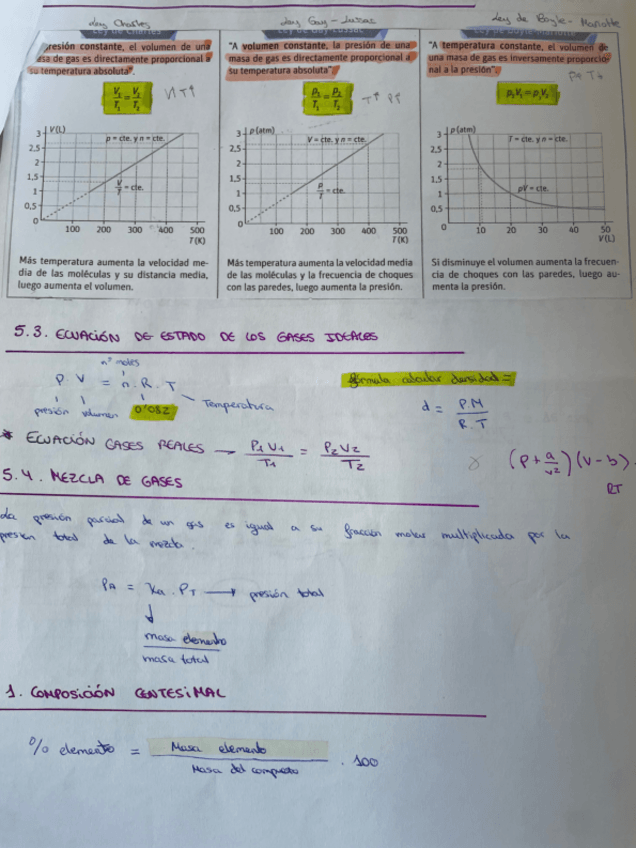 Ley Charles
Ley Gay-Lussac
Ley de Boyle-Mariotte
presión constante, el volumen de una
masa de gas es directamente proporcional a
su temperatura absoluta".
V₁/T₁ = V₂/T₂
V↑ T↑
V(L)
p = cte. y n = cte.
V/T = cte.
3
2,5
2
1,5
1
0,5
0
100 200 300 400 500
T(K)
Más temperatura aumenta la velocidad me-
dia de las moléculas y su distancia media,
luego aumenta el volumen.
"A volumen constante, la presión de una
masa de gas es directamente proporcional a
su temperatura absoluta".
p₁/T₁ = p₂/T₂
T↑ P↑
p(atm)
V = cte. y n = cte.
p/T = cte.
3
2,5
2
1,5
1
0,5
0
100 200 300 400 500
T(K)
Más temperatura aumenta la velocidad media
de las moléculas y la frecuencia de choques
con las paredes, luego aumenta la presión.
"A temperatura constante, el volumen de
una masa de gas es inversamente proporcio-
nal a la presión".
p₁V₁ = p₂V₂
p(atm)
T = cte. y n = cte.
pV = cte.
3
2,5
2
1,5
1
0,5
0
10 20 30 40 50
V(L)
Si disminuye el volumen aumenta la frecuen-
cia de choques con las paredes, luego au-
menta la presión.
5.3. ECUACIÓN DE ESTADO DE LOS GASES IDEALES
nº moles
P. V = n. R. T
presión volumen 0'082 Temperatura
fórmula calcular densidad =
d = P.M / R.T
* ECUACIÓN GASES REALES → P₁V₁/T₁ = P₂V₂/T₂
(P + a/v²)(V - b).
RT
5.4. MEZCLA DE GASES
La presión parcial de un gas es igual a su fracción molar multiplicada por la
presión total de la mezcla.
PA = Xa . PT → presión total
masa elemento
masa total
1. COMPOSICIÓN CENTESIMAL
% elemento = Masa elemento / Masa del compuesto . 100